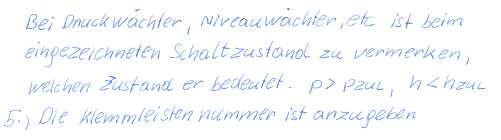 Bei Druckwächter, Niveauwächter, etc ist beim
eingezeichneten Schaltzustand zu vermerken,
welchen Zustand er bedeutet. p > pzul, h < hzul
5.) Die Klemmleistennummer ist anzugeben